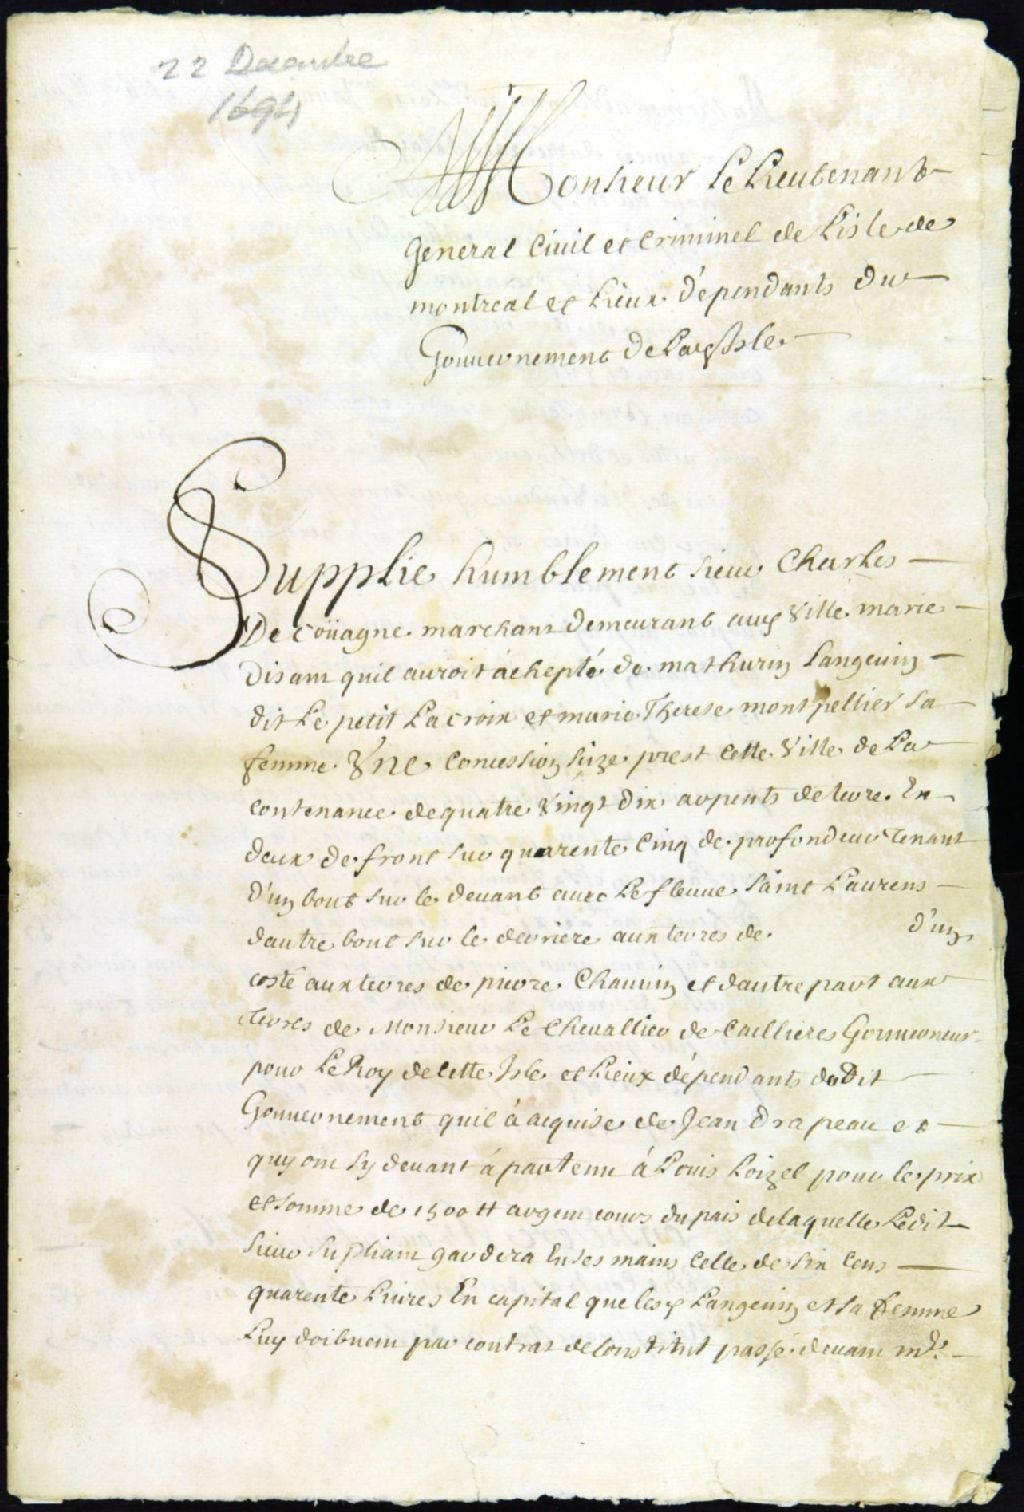 22 Decembre
1694
Monsieur Le Lieutenant
General Civil et Criminel de Lisle de
montreal et Lieux dépendants du
Gouvernement de Lad Isle
Supplie humblement sieur Charles
De Coüagne marchant demeurant aud Ville marie
Disant quil auroit áchepté de mathurin Langevin
dit Le petit Lacroix et marie Therese montpellier sa
femme Vne Concession size prest cette Ville de La
contenance de quatre Vingt dix arpents de terre En
deux de front sur quarente Cinq de profondeur tenant
d'un bout sur le devant avec Le fleuve saint Laurens
dautre bout sur le derriere aux terres de d'un
costé aux terres de pierre Chauvin et dautre part aux
terres de Monsieur Le Chevallier de Caillieres Gouverneur
pour Le Roy de cette Isle et Lieux dépendants dudit
Gouvernement quil á acquise de Jean drapeau et
quy ont sy devant á partenu á Louis Loizel pour le prix
et somme de 1500 tt argent cours du pais de laquelle Ledit
sieur supliant gardera En ses mains Celle de six Cens
quarente Livres En capital que lesd Langevin et sa femme
Luy doibvent par contrat de Constitut passé devant me